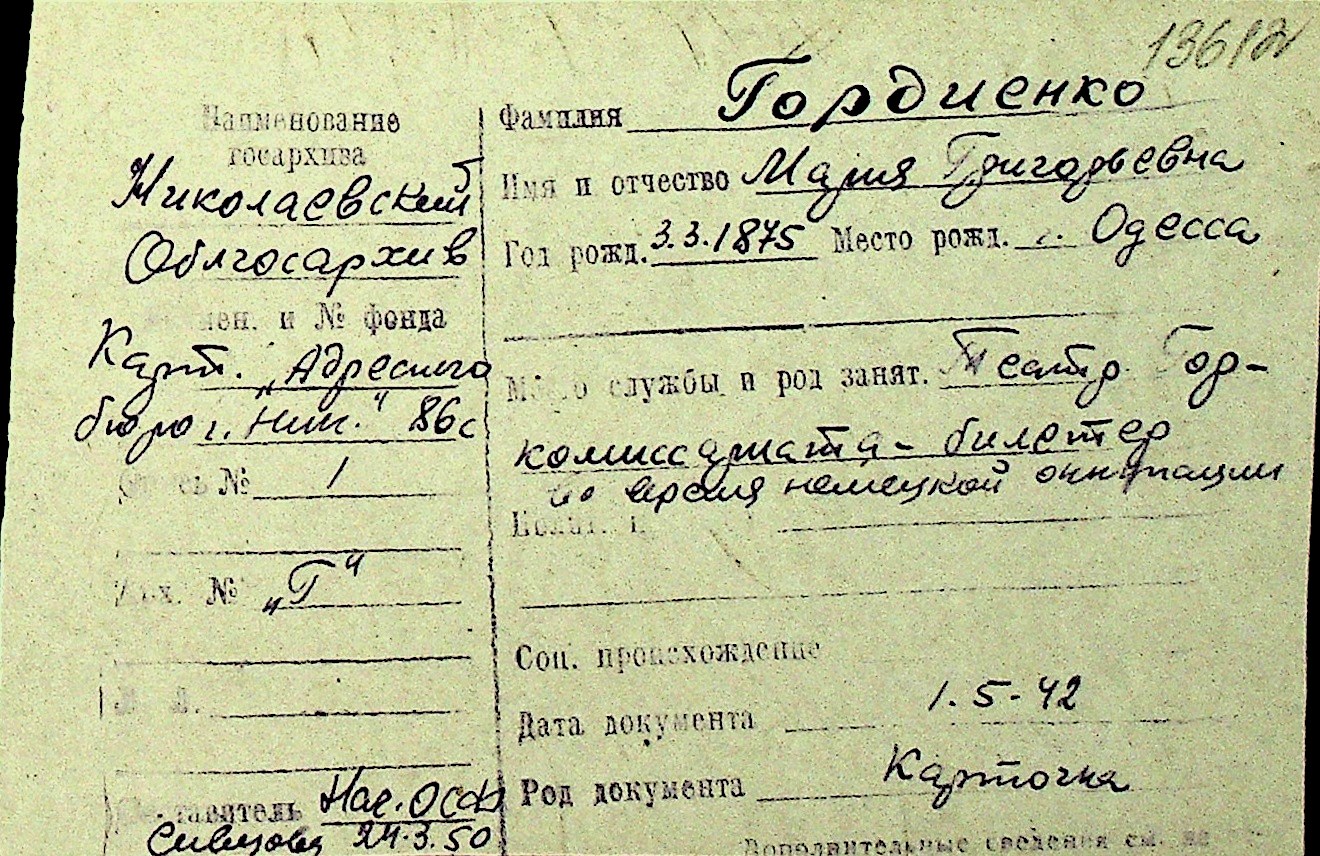 Наименование
госархива
Николаевский
Облгосархив
и № фонда
Карт. "Адресного
бюро г. Ник." 86с
№ 1
№ "Г"
Нач. ОСФ
24.3.50
Фамилия Гордиенко
Имя и отчество Мария Григорьевна
Год рожд. 3.3.1875 Место рожд. Одесса
службы и род занят. Театр Гор-
комиссариата - билетер
во время немецкой оккупации
Соц. происхождение
Дата документа 1.5-42
Род документа Карточка
Дополнительные сведения см.